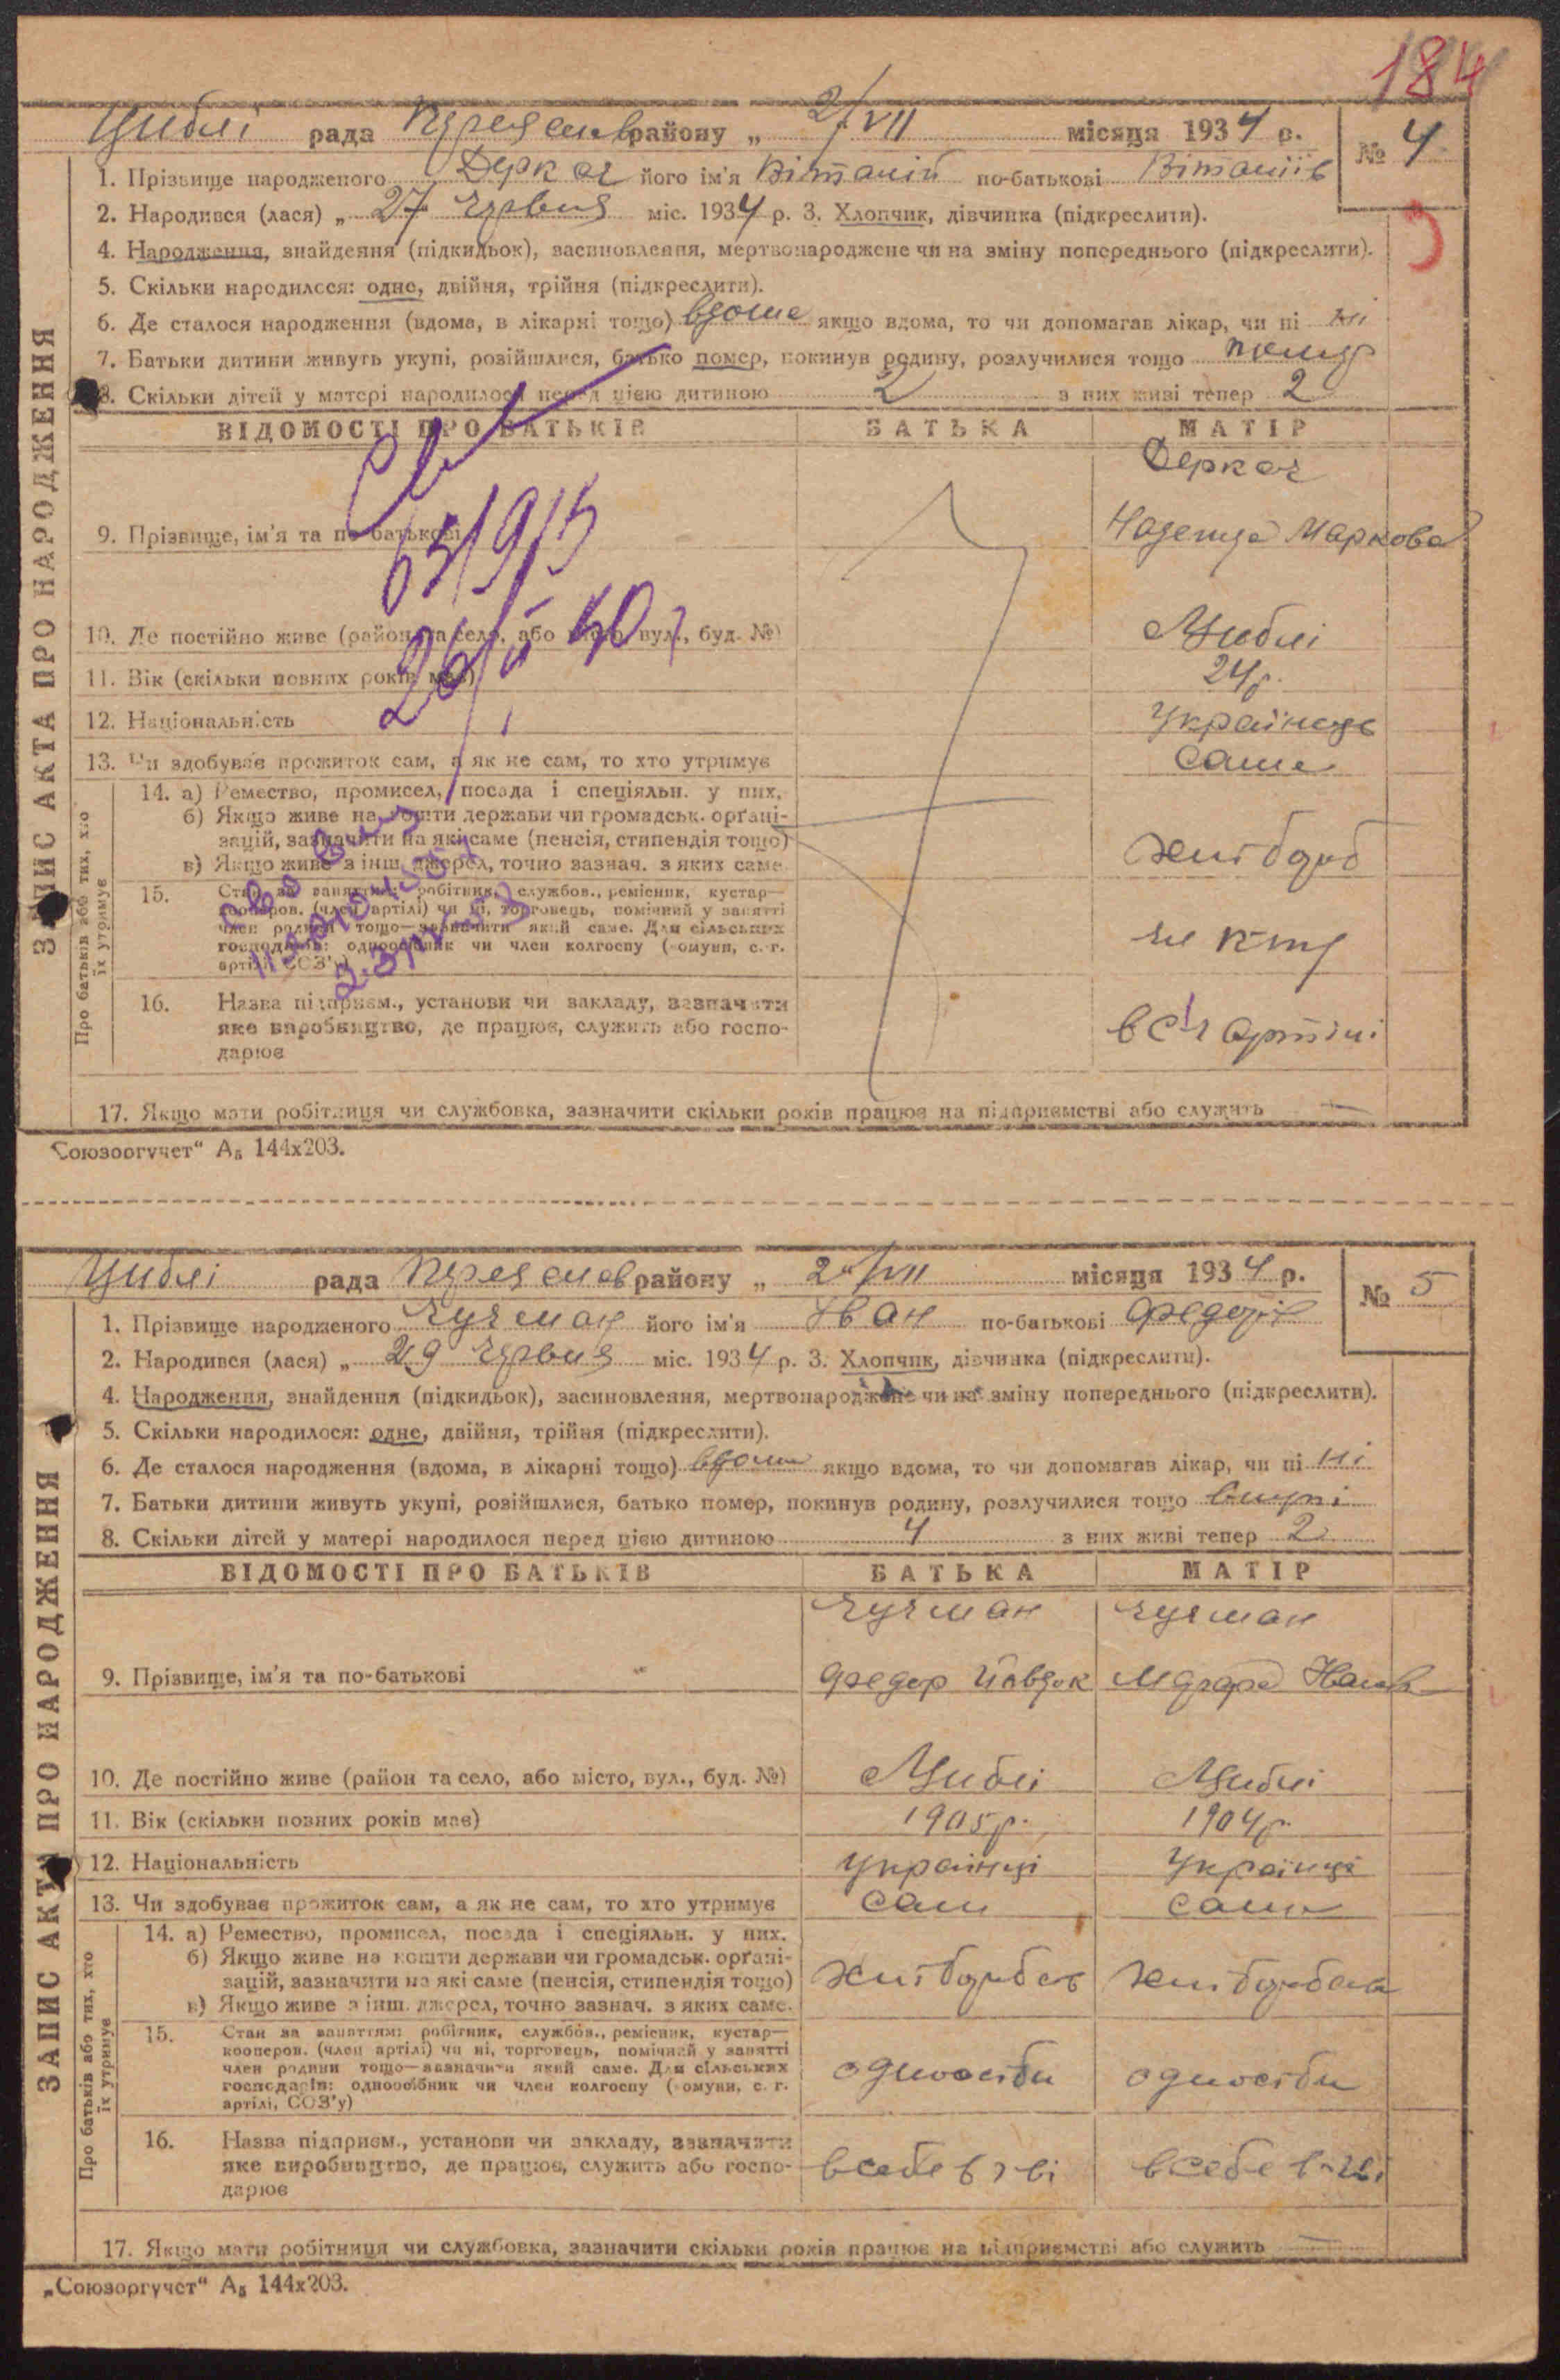 184
Циблі рада Переяслав району „ 2/VII місяця 1934 р. № 4
1. Прізвище народженого Деркач його ім'я Віталій по-батькові Віталіїв
2. Народився (лася) „ 27 червня міс. 1934 р. 3. Хлопчик, дівчинка (підкреслити).
4. Народження, знайдення (підкидьок), засиновлення, мертвонароджене чи на зміну попереднього (підкреслити).
5. Скільки народилося: одне, двійня, трійня (підкреслити).
6. Де сталося народження (вдома, в лікарні тощо) вдома якщо вдома, то чи допомагав лікар, чи ні ні
7. Батьки дитини живуть укупі, розійшлися, батько помер, покинув родину, розлучилися тощо помер
8. Скільки дітей у матері народилося перед цією дитиною 2 з них живі тепер 2
ВІДОМОСТІ ПРО БАТЬКІВ БАТЬКА МАТІР
Деркач
9. Прізвище, ім'я та по батькові Надежда Маркова
10. Де постійно живе (район та село, або місто, вул., буд. №) Циблі
11. Вік (скільки повних років має) 24р.
12. Національність Українець
13. Чи здобуває прожиток сам, а як не сам, то хто утримує сама
14. а) Ремество, промисел, посада і спеціяльн. у них.
б) Якщо живе на кошти держави чи громадськ. організацій, зазначити на які саме (пенсія, стипендія тощо)
в) Якщо живе з інш. джерел, точно зазнач. з яких саме.
хлібороб
15. Стан за заняттям: робітник, службов., ремісник, кустар—
кооперов. (член артілі) чи ні, торговець, помічний у занятті
член родини тощо—зазначити який саме. Для сільських
господарів: одноосібник чи член колгоспу (комуни, с. г.
артілі, СОЗ'у)
16. Назва підприєм., установи чи закладу, зазначити
яке виробництво, де працює, служить або госпо-
дарює
в с/г артілі
17. Якщо мати робітниця чи службовка, зазначити скільки років працює на підприємстві або служить —
ЗАПИС АКТА ПРО НАРОДЖЕННЯ
Про батьків або тих, хто їх утримує
„Союзоргучет“ А5 144х203.
Циблі рада Переяслав району „ 2/VII місяця 1934 р. № 5
1. Прізвище народженого Чучман його ім'я Іван по-батькові Федорів
2. Народився (лася) „ 29 червня міс. 1934 р. 3. Хлопчик, дівчинка (підкреслити).
4. Народження, знайдення (підкидьок), засиновлення, мертвонароджене чи на зміну попереднього (підкреслити).
5. Скільки народилося: одне, двійня, трійня (підкреслити).
6. Де сталося народження (вдома, в лікарні тощо) вдома якщо вдома, то чи допомагав лікар, чи ні ні
7. Батьки дитини живуть укупі, розійшлися, батько помер, покинув родину, розлучилися тощо вкупі
8. Скільки дітей у матері народилося перед цією дитиною 4 з них живі тепер 2
ВІДОМОСТІ ПРО БАТЬКІВ БАТЬКА МАТІР
Чучман Чучман
9. Прізвище, ім'я та по-батькові Федор
10. Де постійно живе (район та село, або місто, вул., буд. №) Циблі Циблі
11. Вік (скільки повних років має) 1905р. 1904р.
12. Національність Українці Українці
13. Чи здобуває прожиток сам, а як не сам, то хто утримує сам сама
14. а) Ремество, промисел, посада і спеціяльн. у них.
б) Якщо живе на кошти держави чи громадськ. організацій, зазначити на які саме (пенсія, стипендія тощо)
в) Якщо живе з інш. джерел, точно зазнач. з яких саме.
15. Стан за заняттям: робітник, службов., ремісник, кустар—
кооперов. (член артілі) чи ні, торговець, помічний у занятті
член родини тощо—зазначити який саме. Для сільських
господарів: одноосібник чи член колгоспу (комуни, с. г.
артілі, СОЗ'у)
одноосібн одноосібн
16. Назва підприєм., установи чи закладу, зазначити
яке виробництво, де працює, служить або госпо-
дарює
в себе в себе
17. Якщо мати робітниця чи службовка, зазначити скільки років працює на підприємстві або служить —
ЗАПИС АКТА ПРО НАРОДЖЕННЯ
Про батьків або тих, хто їх утримує
„Союзоргучет“ А5 144х203.